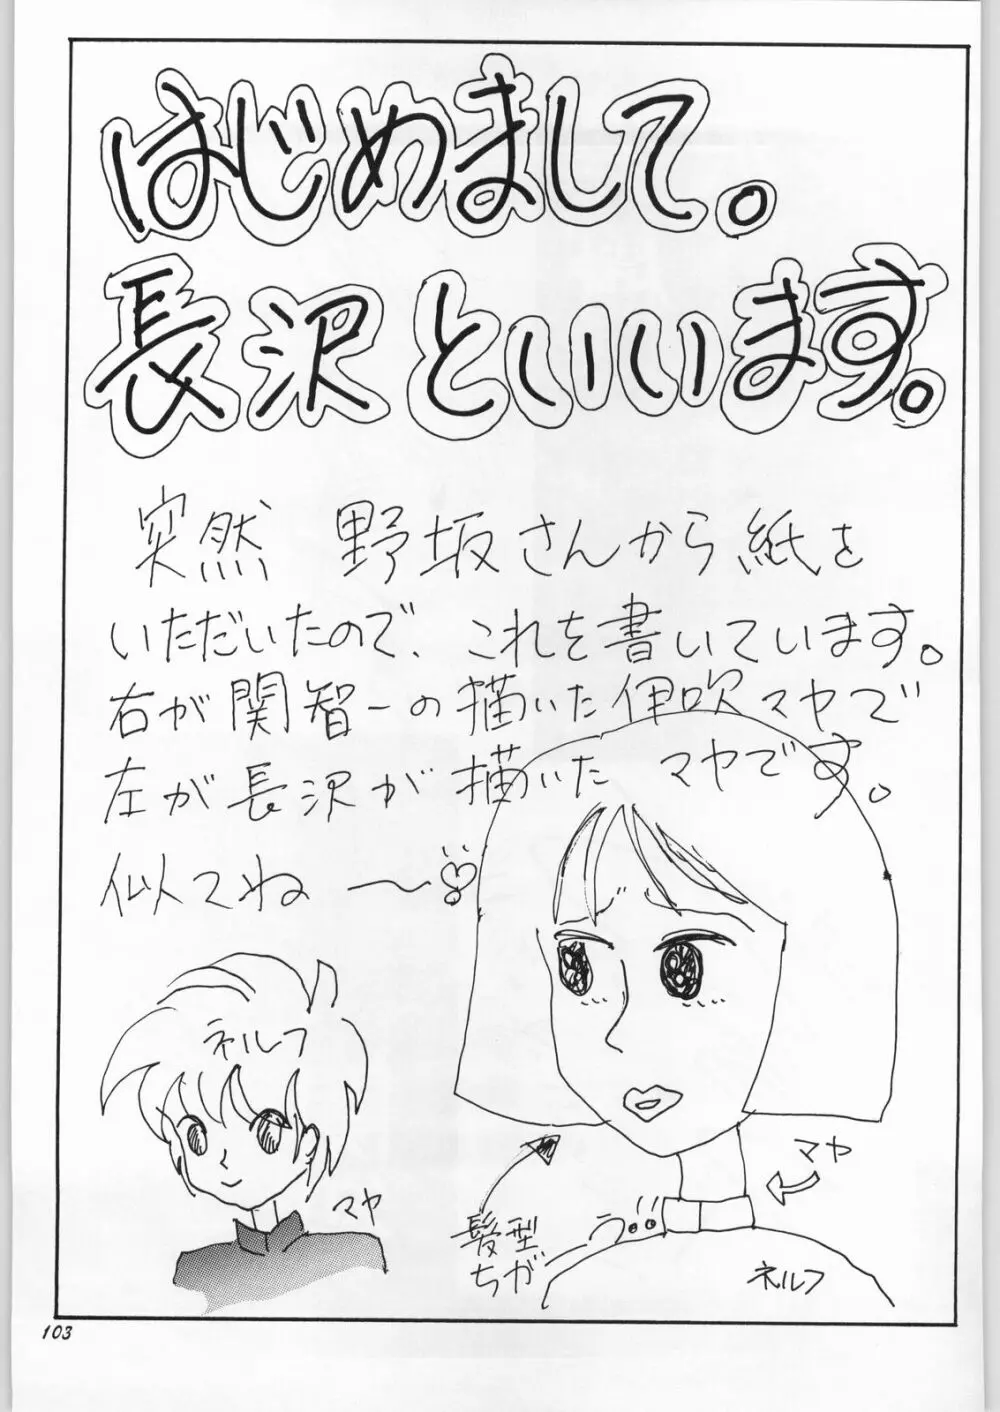 はじめまして。
長沢といいます。
突然 野坂さんから紙を
いただいたので、これを書いています。
右が関智一の描いた伊吹マヤで
左が長沢が描いた マヤです。
似てね 〜♡
ネルフ
マヤ
マヤ
髪型
ちがう!!
ネルフ
103